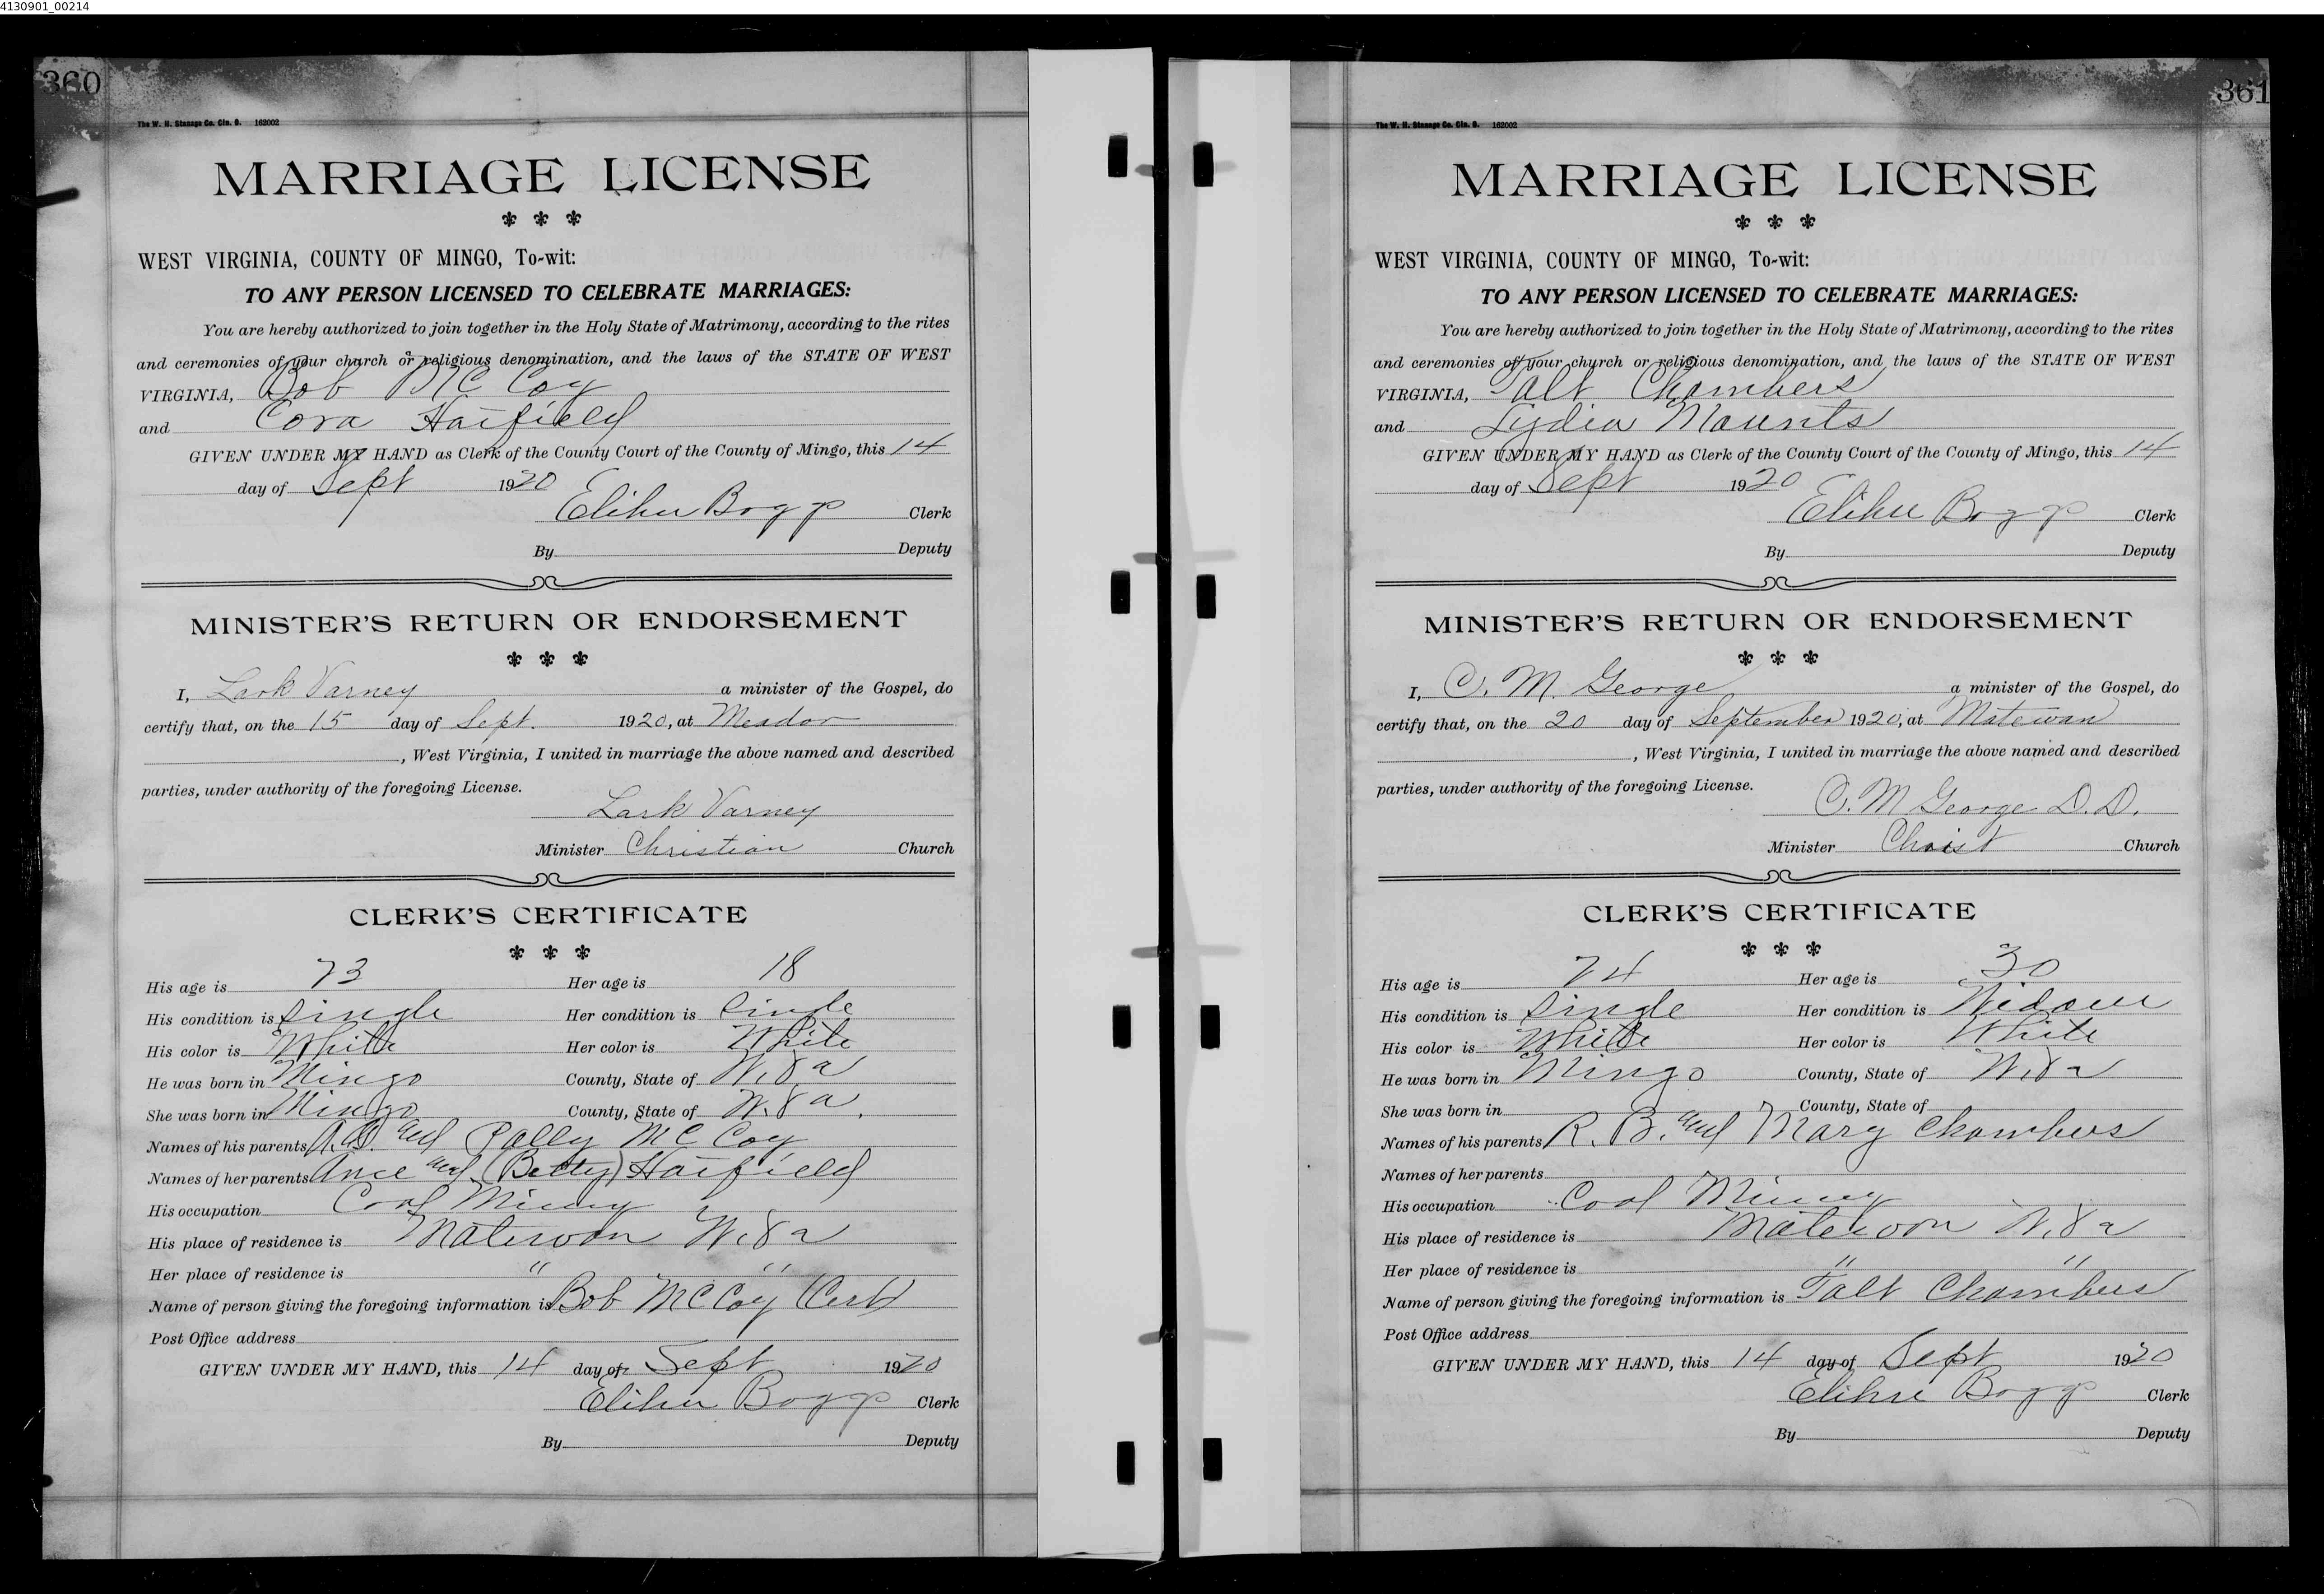 4130901_00214
360
The W. H. Stanage Co. Cin. O. 162002
MARRIAGE LICENSE
WEST VIRGINIA, COUNTY OF MINGO, To-wit:
TO ANY PERSON LICENSED TO CELEBRATE MARRIAGES:
You are hereby authorized to join together in the Holy State of Matrimony, according to the rites
and ceremonies of your church or religious denomination, and the laws of the STATE OF WEST
VIRGINIA, Bob McCoy
and Cora Hatfield
GIVEN UNDER MY HAND as Clerk of the County Court of the County of Mingo, this 14
day of Sept 1920
Elihu Boggs Clerk
By Deputy
MINISTER'S RETURN OR ENDORSEMENT
I, Lark Varney a minister of the Gospel, do
certify that, on the 15 day of Sept. 1920, at Meador
, West Virginia, I united in marriage the above named and described
parties, under authority of the foregoing License.
Lark Varney
Minister Christian Church
CLERK'S CERTIFICATE
His age is 23 Her age is 18
His condition is Single Her condition is Single
His color is White Her color is White
He was born in Mingo County, State of W. Va
She was born in Mingo County, State of W. Va.
Names of his parents and Polly McCoy
Names of her parents Ance and (Betty) Hatfield
His occupation Coal Mining
His place of residence is Matewan W. Va
Her place of residence is " "
Name of person giving the foregoing information is Bob McCoy (Cert)
Post Office address
GIVEN UNDER MY HAND, this 14 day of Sept 1920
Elihu Boggs Clerk
By Deputy
361
The W. H. Stanage Co. Cin. O. 162002
MARRIAGE LICENSE
WEST VIRGINIA, COUNTY OF MINGO, To-wit:
TO ANY PERSON LICENSED TO CELEBRATE MARRIAGES:
You are hereby authorized to join together in the Holy State of Matrimony, according to the rites
and ceremonies of your church or religious denomination, and the laws of the STATE OF WEST
VIRGINIA, Talt Chambers
and Lydia Maunts
GIVEN UNDER MY HAND as Clerk of the County Court of the County of Mingo, this 14
day of Sept 1920
Elihu Boggs Clerk
By Deputy
MINISTER'S RETURN OR ENDORSEMENT
I, C. M. George a minister of the Gospel, do
certify that, on the 20 day of September 1920, at Matewan
, West Virginia, I united in marriage the above named and described
parties, under authority of the foregoing License.
C. M George D. D.
Minister Christ Church
CLERK'S CERTIFICATE
His age is 24 Her age is 30
His condition is Single Her condition is Widow
His color is White Her color is White
He was born in Mingo County, State of W. Va
She was born in County, State of
Names of his parents R. B. and Mary Chambers
Names of her parents
His occupation Coal Mining
His place of residence is Matewan W. Va
Her place of residence is " "
Name of person giving the foregoing information is Talt Chambers
Post Office address
GIVEN UNDER MY HAND, this 14 day of Sept 1920
Elihu Boggs Clerk
By Deputy